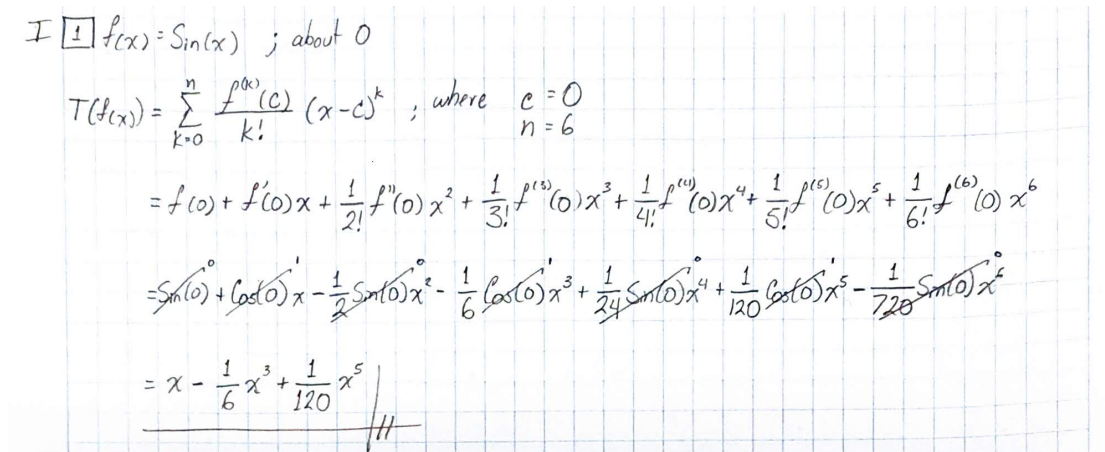 I 1 f(x) = Sin(x) ; about 0
T(f(x)) = \sum_{k=0}^{n} \frac{f^{(k)}(c)}{k!} (x-c)^k ; where c = 0
n = 6
= f(0) + f'(0)x + \frac{1}{2!} f''(0) x^2 + \frac{1}{3!} f^{(3)}(0) x^3 + \frac{1}{4!} f^{(4)}(0) x^4 + \frac{1}{5!} f^{(5)}(0) x^5 + \frac{1}{6!} f^{(6)}(0) x^6
= \cancelto{0}{Sin(0)} + \cancelto{1}{Cos(0)} x - \cancelto{0}{\frac{1}{2} Sin(0) x^2} - \frac{1}{6} \cancelto{1}{Cos(0)} x^3 + \cancelto{0}{\frac{1}{24} Sin(0) x^4} + \frac{1}{120} \cancelto{1}{Cos(0)} x^5 - \cancelto{0}{\frac{1}{720} Sin(0) x^6}
= x - \frac{1}{6} x^3 + \frac{1}{120} x^5